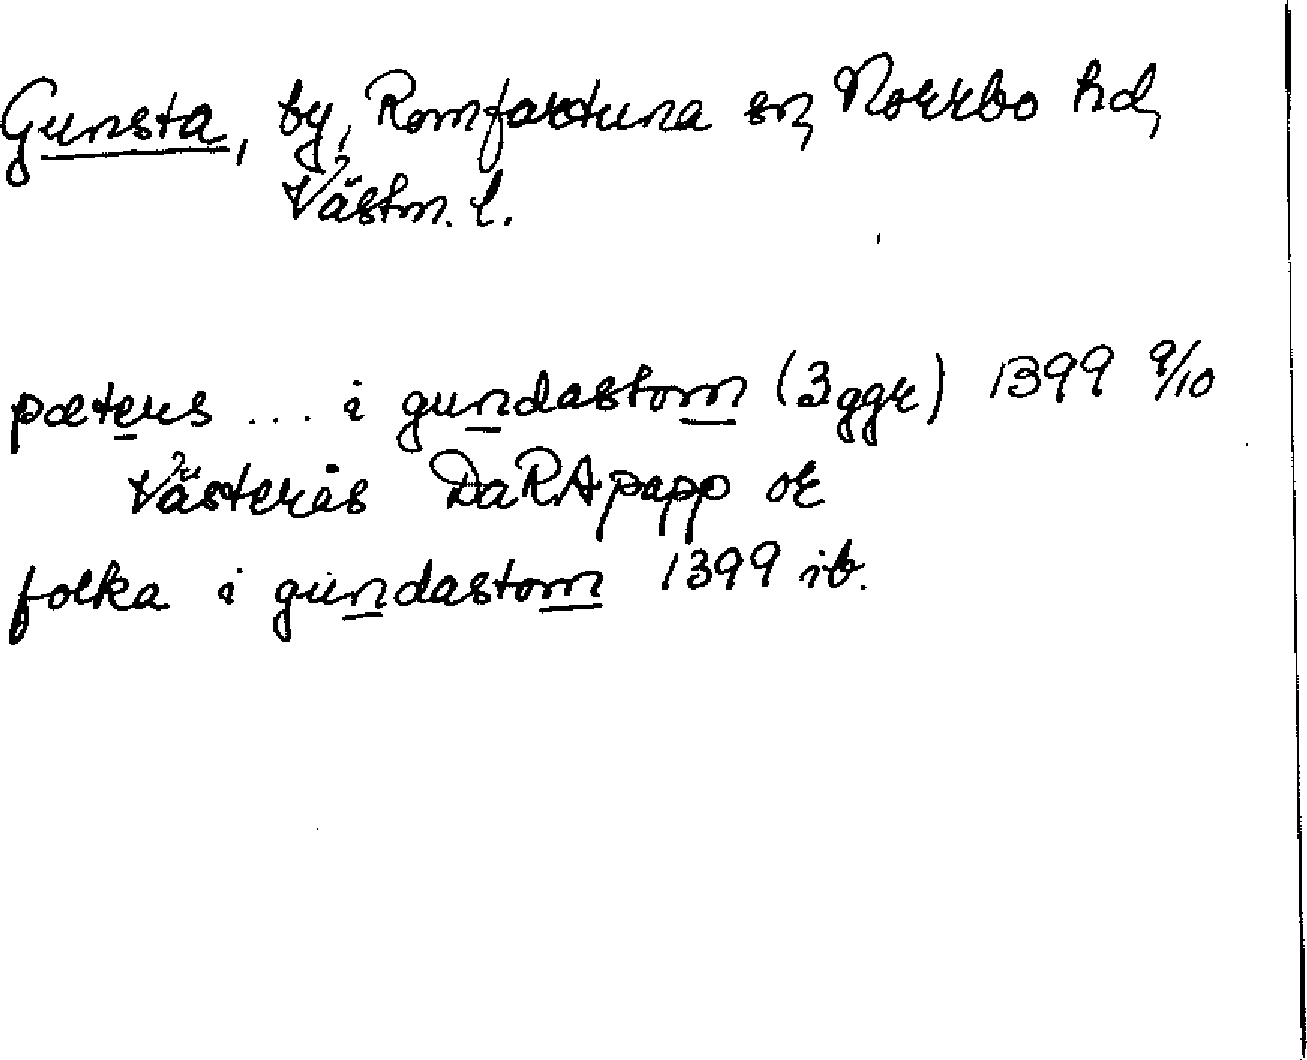 Gunsta, by, Romfartuna sn, Norrbo hd,
Västm. l.
pæters ... i gundastom (3 ggr) 1399 9/10
Västerås DaRApapp or
folka i gundastom 1399 ib.